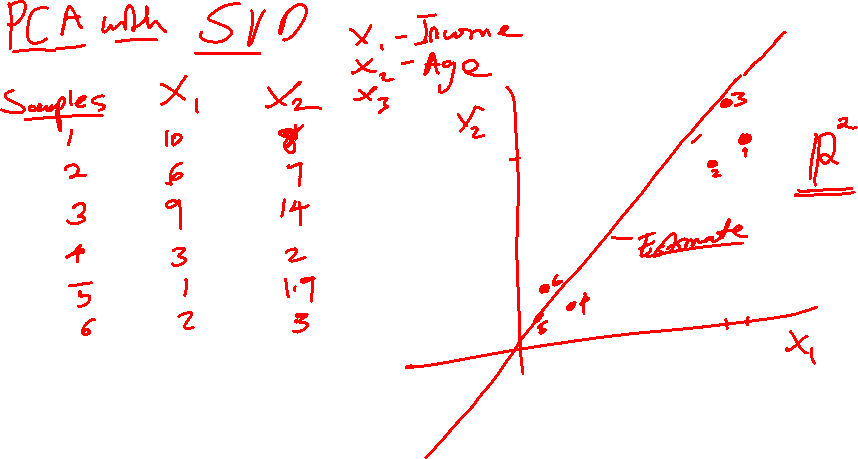 PCA with SVD
X1 - Income
X2 - Age
X3
Samples X1 X2
1 10
2 6 7
3 9 14
4 3 2
5 1 1.9
6 2 3
X2
3
1
2
R²
Estimate
6
4
5
X1